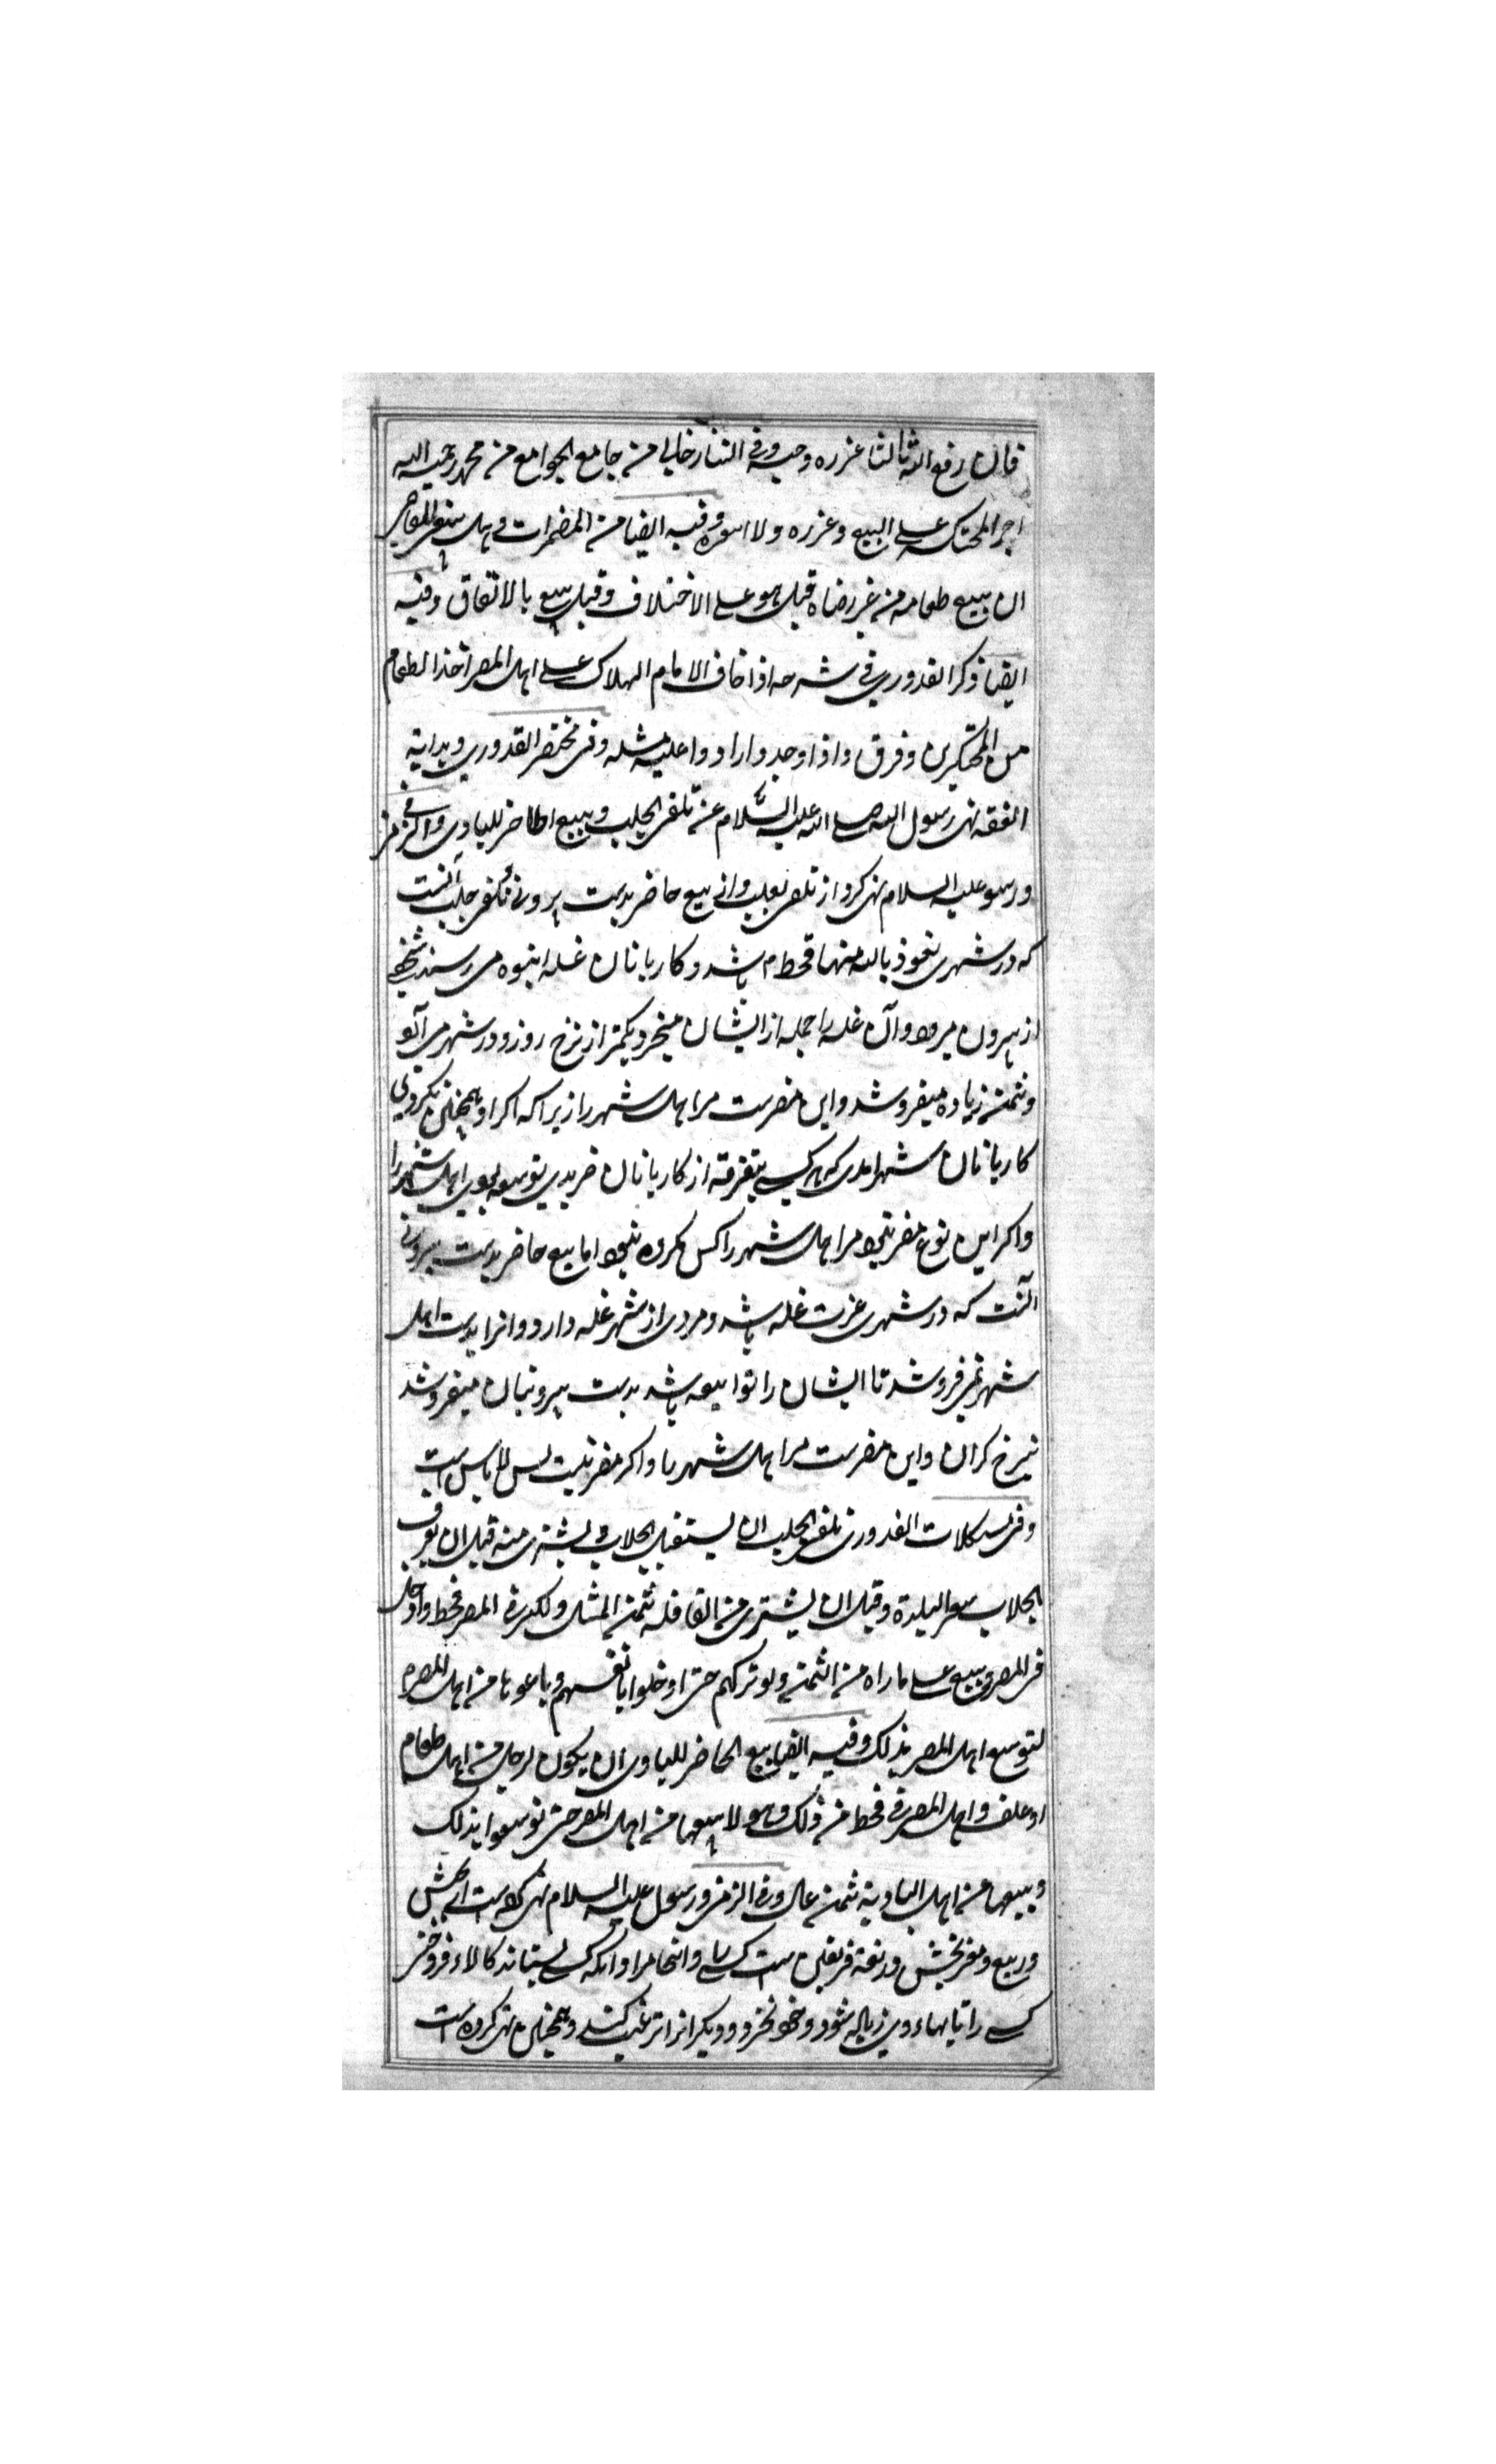 فان رفع الیه ثالثا عزره وحبسه وفی التتارخانی من جامع الجوامع من محمد رحمه الله
اجبر المحتکر علی البیع وعزره ولا اسعره وفیه ایضا من المضمرات وهل للقاضی
ان یبیع طعامه من غیر رضاه قیل هو علی الاختلاف وقیل یبیع بالاتفاق وفیه
ایضا ذکر القدوری فی شرحه اذا خاف الامام الهلاک علی اهل المصر اخذ الطعام
من المحتکرین وفرق واذا وجدوا ردوا علیه مثله وفی مختصر القدوری وبدایة
الفقه نهی رسول الله صلی الله علیه السلام عن تلقی الجلب وبیع الحاضر للبادی
ورسو علیه السلام نهی کرد از تلقی جلب و از بیع حاضر بدست برونی تلقی جلب آنست
که در شهری نعوذ بالله منها قحط باشد و کاربانان غله انبوه می رسند شخصی
از بیرون میرود و آن غله را جمله از ایشان میخرد بکمتر از نرخ روز و در شهر می آرد
وبثمن زیاده میفروشد واین مضرست مر اهل شهر را زیراکه اکر او همچنین نکردی
کاربانان شهر امدی که هر کسی بتفرقه از کاربانان خریدی توسعه بودی اهل شهر را
واکر این نوع مضر نبود مر اهل شهر را کس مکروه نبود اما بیع حاضر بدست بیرونی
آنست که در شهری عزت غله باشد و مردی از شهر غله دارد و انرا بدست اهل
شهر نمی فروشد تا ایشان را توابیعه باشد بدست بیرونیان میفروشد
نبرخ کران واین مضرست مر اهل شهر را واکر مضر نیست پس لا باس است
وفی مشکلات القدوری تلقی الجلب ان یستقبل الجلاب ویشتری منه قبل ان یعرف
الجلاب سعر البلدة وقیل ان یشتری من القافلة بثمن المثل ولکن فی المصر قحط وادخل
فی المصر ویبیع علی ما راه من الثمن ولو ترکهم حتی ادخلوا بانفسهم وباعوها من اهل المصر
لتوسع اهل المصر بذلک وفیه ایضا بیع الحاضر للبادی ان یکون لرجل من اهل طعام
او علف واهل المصر فی قحط من ذلک وهو لا یبیعها من اهل المصر حتی توسعوا بذلک
ویبیعها من اهل البادیة بثمن عال وفی الرمز ورسول علیه السلام نهی کرده است از نجش
در بیع ومعنی نجش در لغة فریفتن است کسی را وانجا مراد آنکه کسی بستاند کالاء فروختن
کسی را تا بهاء وی زیاده شود وخود نخرد ودیکرانرا ترغیب کند وهمچنین نهی کرده است